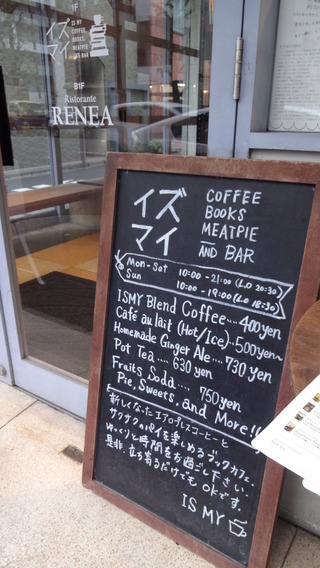 1F
イズ
マイ
IS MY
COFFEE
BOOKS
MEATPIE
AND BAR
B1F
Ristorante
RENEA
イズ
マイ
COFFEE
BOOKS
MEATPIE
AND BAR
Mon-Sat 10:00-21:00 (L.O 20:30)
Sun 10:00-19:00 (L.O 18:30)
ISMY Blend Coffee.... 400yen
Café au lait (Hot/Ice)...500yen~
Homemade Ginger Ale.... 730 yen
Pot Tea.... 630 yen
Fruits Soda.... 750yen
Pie, Sweets, and More!!
新しくなったエアロプレスコーヒーと
サクサクのパイを楽しめるブックカフェ。
ゆっくりと時間をお過ごし下さい。
是非、立ち寄るだけでもokです。
IS MY